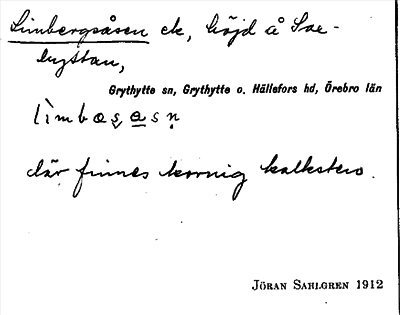 Limbergsåsen ek, höjd å Sae-
hyttan,
Grythytte sn, Grythytte o. Hällefors hd, Örebro län
lìmbæs̬a̲sṇ
där finnes kornig kalksten.
JÖRAN SAHLGREN 1912